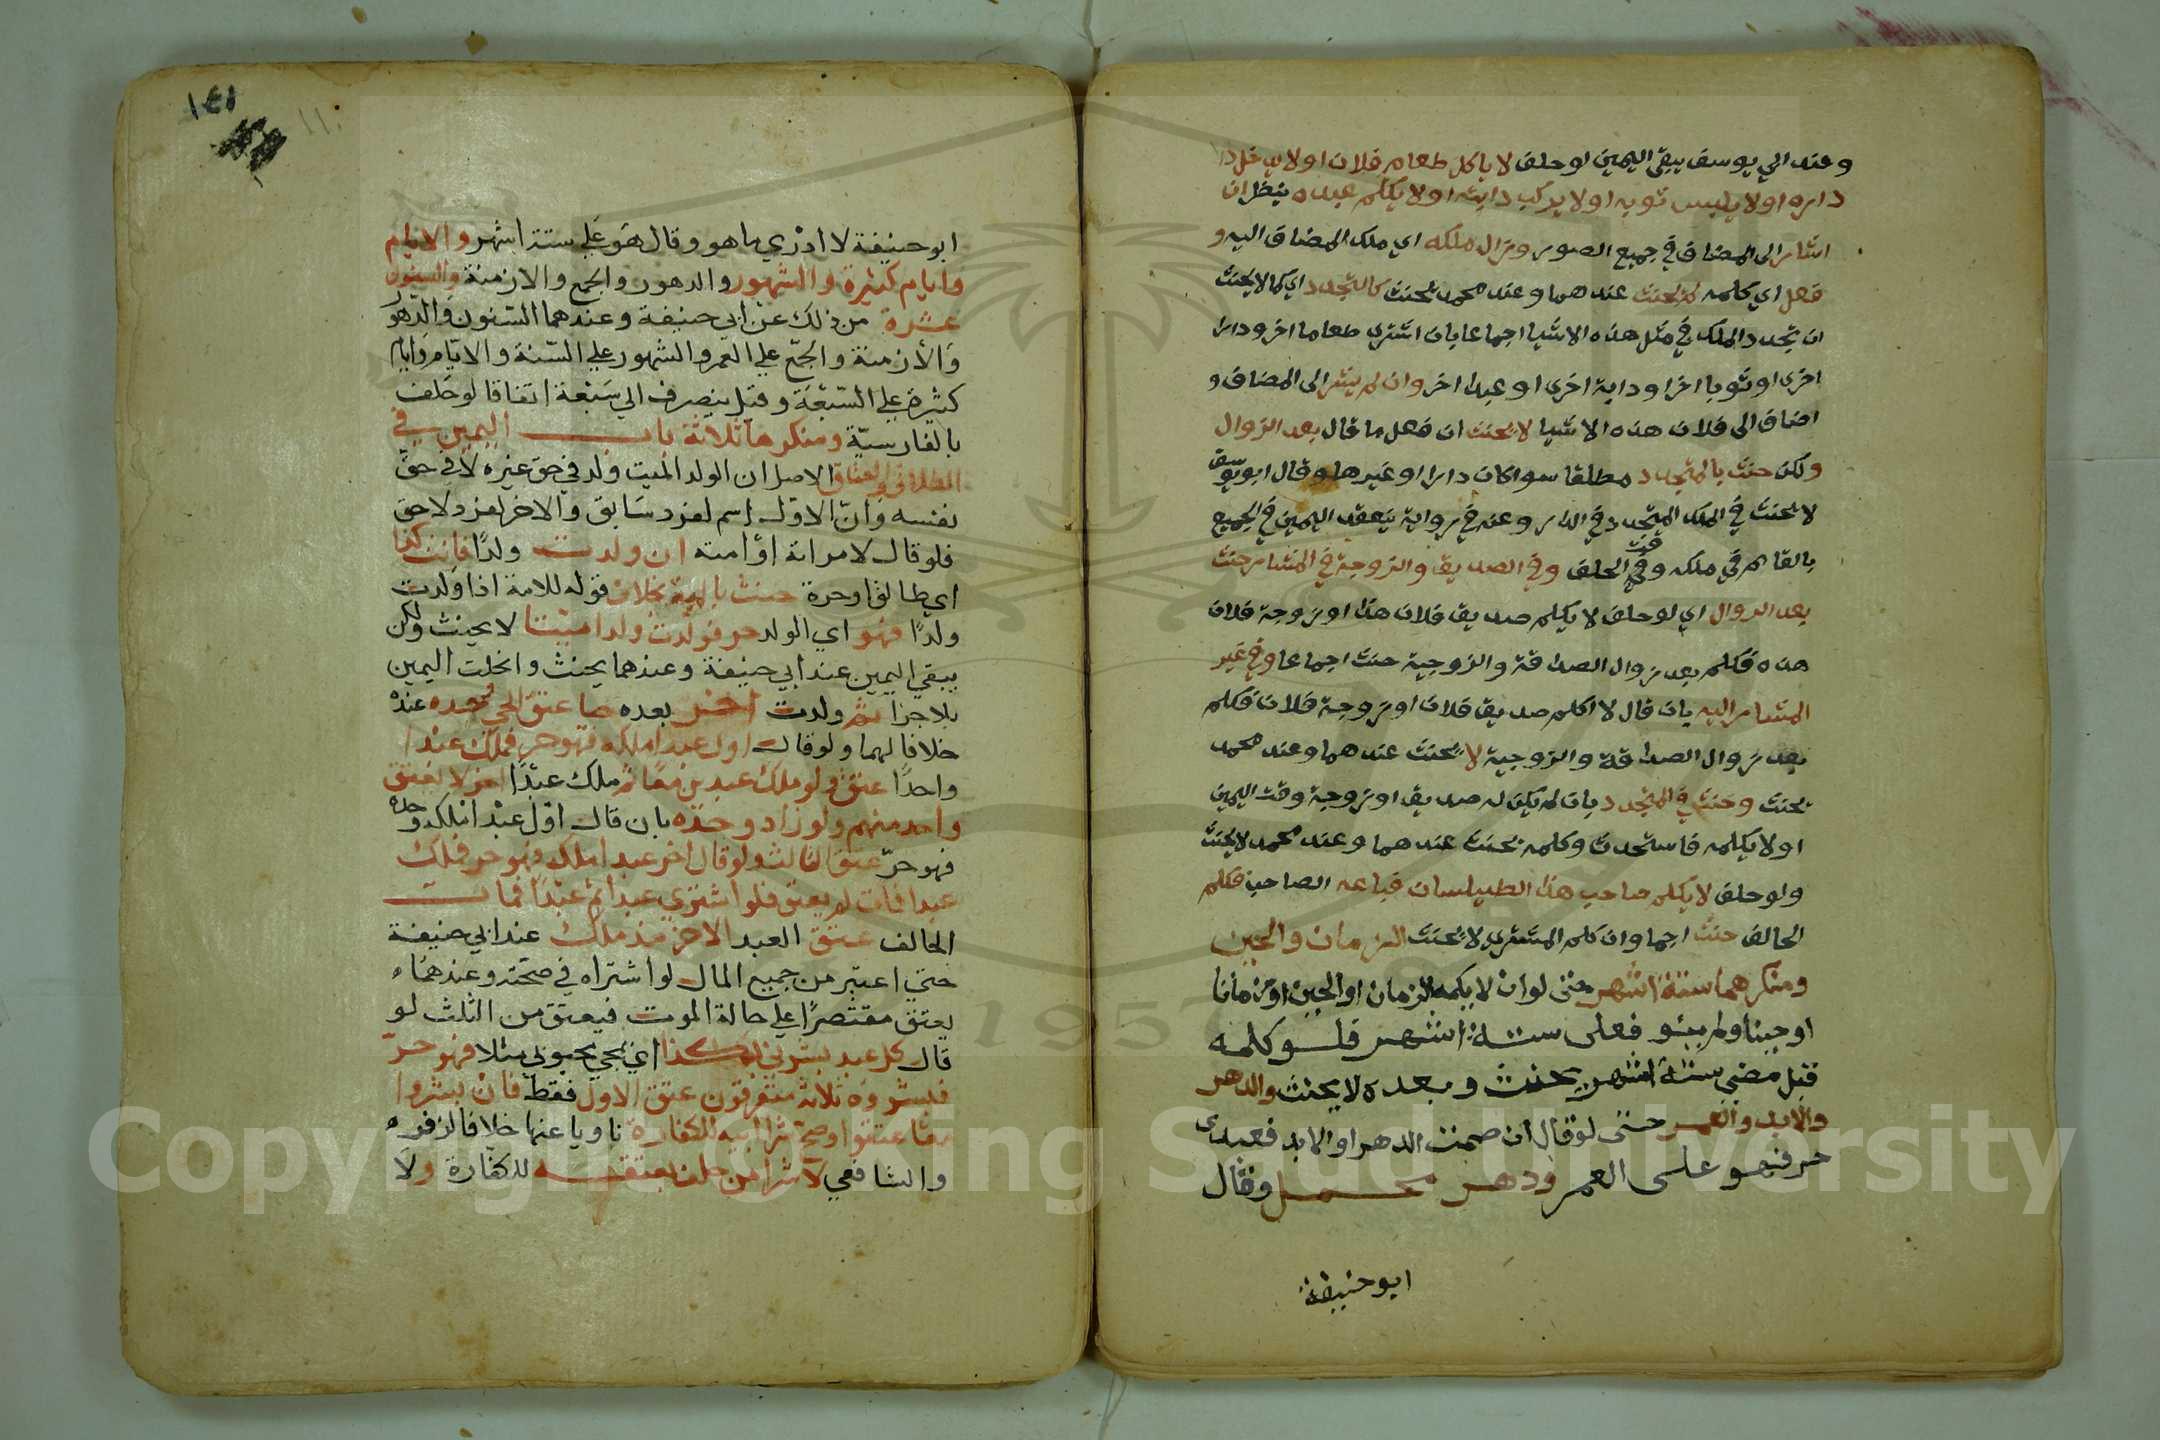 وعند ابي يوسف يبقى اليمين لو حلف لا ياكل طعام فلان او لا يدخل دا
داره او لا يلبس ثوبه او لا يركب دابته او لا يكلم عبده ينظر ان
اشار الى المضاف في جميع الصور وزال ملكه اي ملك المضاف اليه و
فعل اي كلمه لم يحنث عندهما وعند محمد يحنث كالتجدد اي كما لا يحنث
ان تجدد الملك في مثل هذه الاشيا اجماعا بان اشترى طعاما اخر ودارا
اخرى او ثوبا اخرا ودابة اخرى او عبدا اخر وان لم يشر الى المضاف و
اضاف الى فلان هذه الاشيا لا يحنث ان فعل ما قال بعد الزوال
ولكن حنث بالمتجدد مطلقا سوا كان دارا او غيرها وقال ابو يوسف
لا يحنث في الملك المتجدد في الدار وعنه في رواية ينعقد اليمين في الجميع
بالقائم في ملكه وقت الحلف وفي الصديق والزوجة في المشار حنث
بعد الزوال اي لو حلف لا يكلم صديق فلان هذا او زوجة فلان
هذه فكلم بعد زوال الصداقة والزوجية حنث اجماعا وفي غير
المشار اليه بان قال لا اكلم صديق فلان او زوجة فلان فكلم
بعد زوال الصداقة والزوجية لا يحنث عندهما وعند محمد
يحنث وحنث في المتجدد بان لم يكن له صديق او زوجة وقت اليمين
او لا يكلمه فاستحدث وكلمه يحنث عندهما وعند محمد لا يحنث
ولو حلف لا يكلم صاحب هذا الطيلسان فباعه الصاحب فكلم
الحالف حنث اجما وان كلم المشتري لا يحنث الزمان والحين
ومنكرهما ستة اشهر حتى لو ان لا يكمه الزمان او الحين او زمانا
او حينا ولم ينو فعلى ستة اشهر فلو كلمه
قبل مضي ستة اشهر يحنث وبعده لا يحنث والدهر
والابد والعمر حتى لو قال ان صمت الدهر او الابد فعبدى
حر فهو على العمر ودهر مجمل وقال
ابو حنيفة
١٤١
١١٠
ابو حنيفة لا ادري ما هو وقال هو على ستة اشهر والايام
وايام كثيرة والشهور والدهور والجمع والازمنة والسنون
عشرة من ذلك عن ابي حنيفة وعندهما السنون والدهو
والأزمنة والجمع على العمر والشهور على السنة والايام وايام
كثيرة على السبعة وقيل ينصرف الى سبعة اتفاقا لو حلف
بالفارسية ومنكرها ثلاثة باب اليمين في
الطلاق والعتاق الاصل ان الولد الميت ولد في حق غيره لا في حق
نفسه وان الاول اسم لفرد سابق والاخر لفرد لاحق
فلو قال لامراته او امته ان ولدت ولدا فانت كذا
اي طالق او حرة حنث بالميت بخلاف قوله للامة اذا ولدت
ولدا فهو اي الولد حر فولدت ولدا ميتا لا يحنث ولكن
يبقي اليمين عند ابي حنيفة وعندهما يحنث وانحلت اليمين
بلا جزا ثم ولدت اخر بعده حيا عتق الحي وحده عنده
خلافا لهما ولو قال اول عبد املكه فهو حر فملك عبدا
واحدا عتق ولو ملك عبدين معا ثم ملك عبدا اخر لا يعتق
واحد منهم ولو زاد وحده بان قال اول عبد املكه وحده
فهو حر عتق الثالث ولو قال اخر عبد املكه فهو حر فملك
عبدا فمات لم يعتق فلو اشترى عبدا ثم عبدا فمات
الحالف عتق العبد الاخر مذ ملك عند ابي حنيفة
حتى اعتبر من جميع المال لو اشتراه في صحته وعندهما
يعتق مقتصرا على حالة الموت فيعتق من الثلث لو
قال كل عبد بشرني بكذا اي بمجي محبوبي مثلا فهو حر
فبشروه ثلاثة متفرقون عتق الاول فقط فان بشروا
معا عتقوا وصح شرا ابيه للكفارة ناويا عنها خلافا لزفر
والشافعي لا شرا من حلف بعتقه للكفارة ولا
1957
Copyright © King Saud University